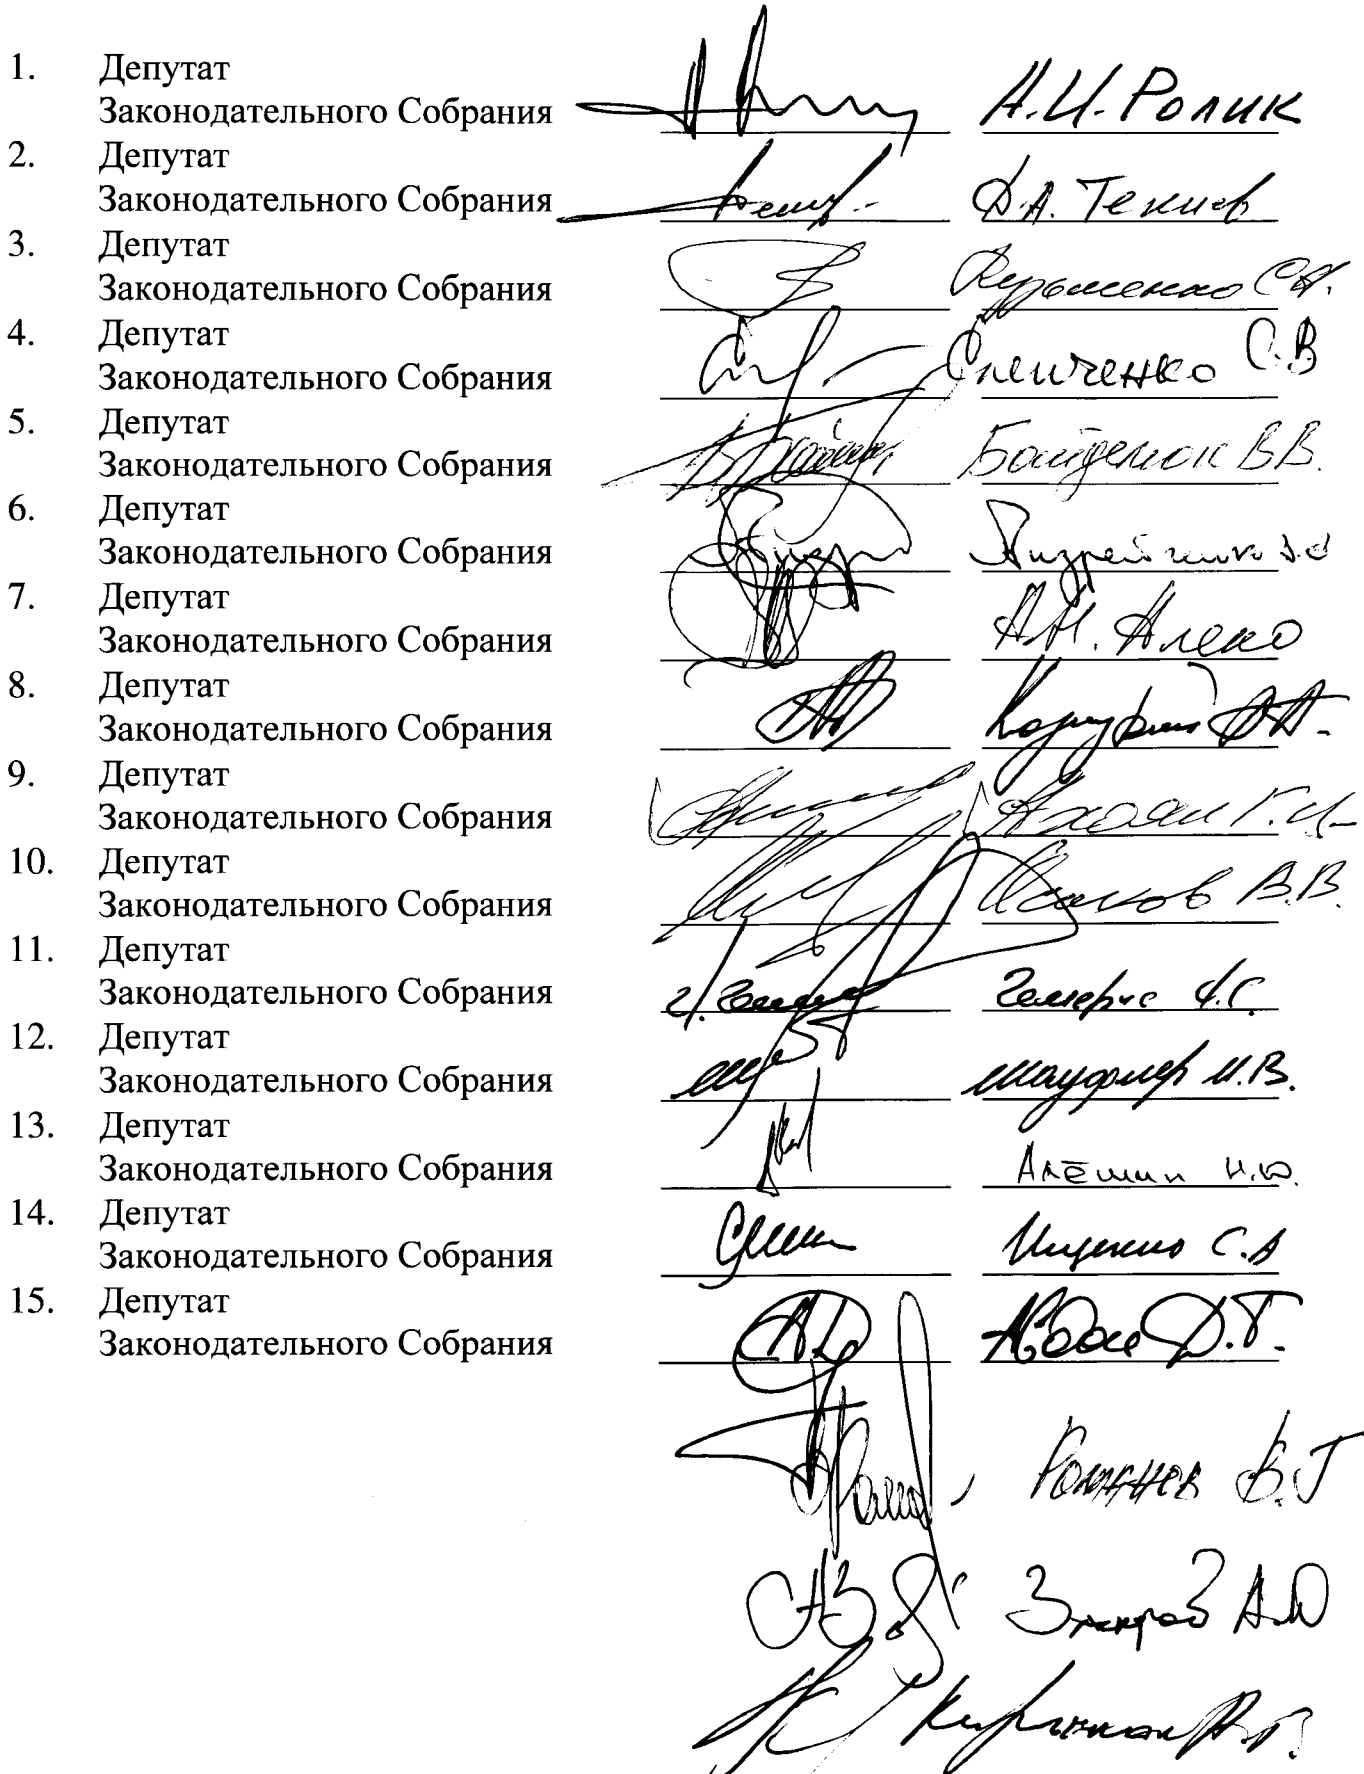 1. Депутат
Законодательного Собрания А.И. Ролик
2. Депутат
Законодательного Собрания Д.А. Текиев
3. Депутат
Законодательного Собрания Кузьменко С.А.
4. Депутат
Законодательного Собрания Слепченко С.В
5. Депутат
Законодательного Собрания Байденюк В.В.
6. Депутат
Законодательного Собрания Андрейченко
7. Депутат
Законодательного Собрания А.Н. Алеко
8. Депутат
Законодательного Собрания
9. Депутат
Законодательного Собрания Ахоян Г.И.
10. Депутат
Законодательного Собрания Исаков В.В.
11. Депутат
Законодательного Собрания Гемерис А.С.
12. Депутат
Законодательного Собрания Шауфлер И.В.
13. Депутат
Законодательного Собрания Алёшин Н.Ю.
14. Депутат
Законодательного Собрания Ищенко С.А
15. Депутат
Законодательного Собрания Абдои Д.Т.
В.Г
А.Ю